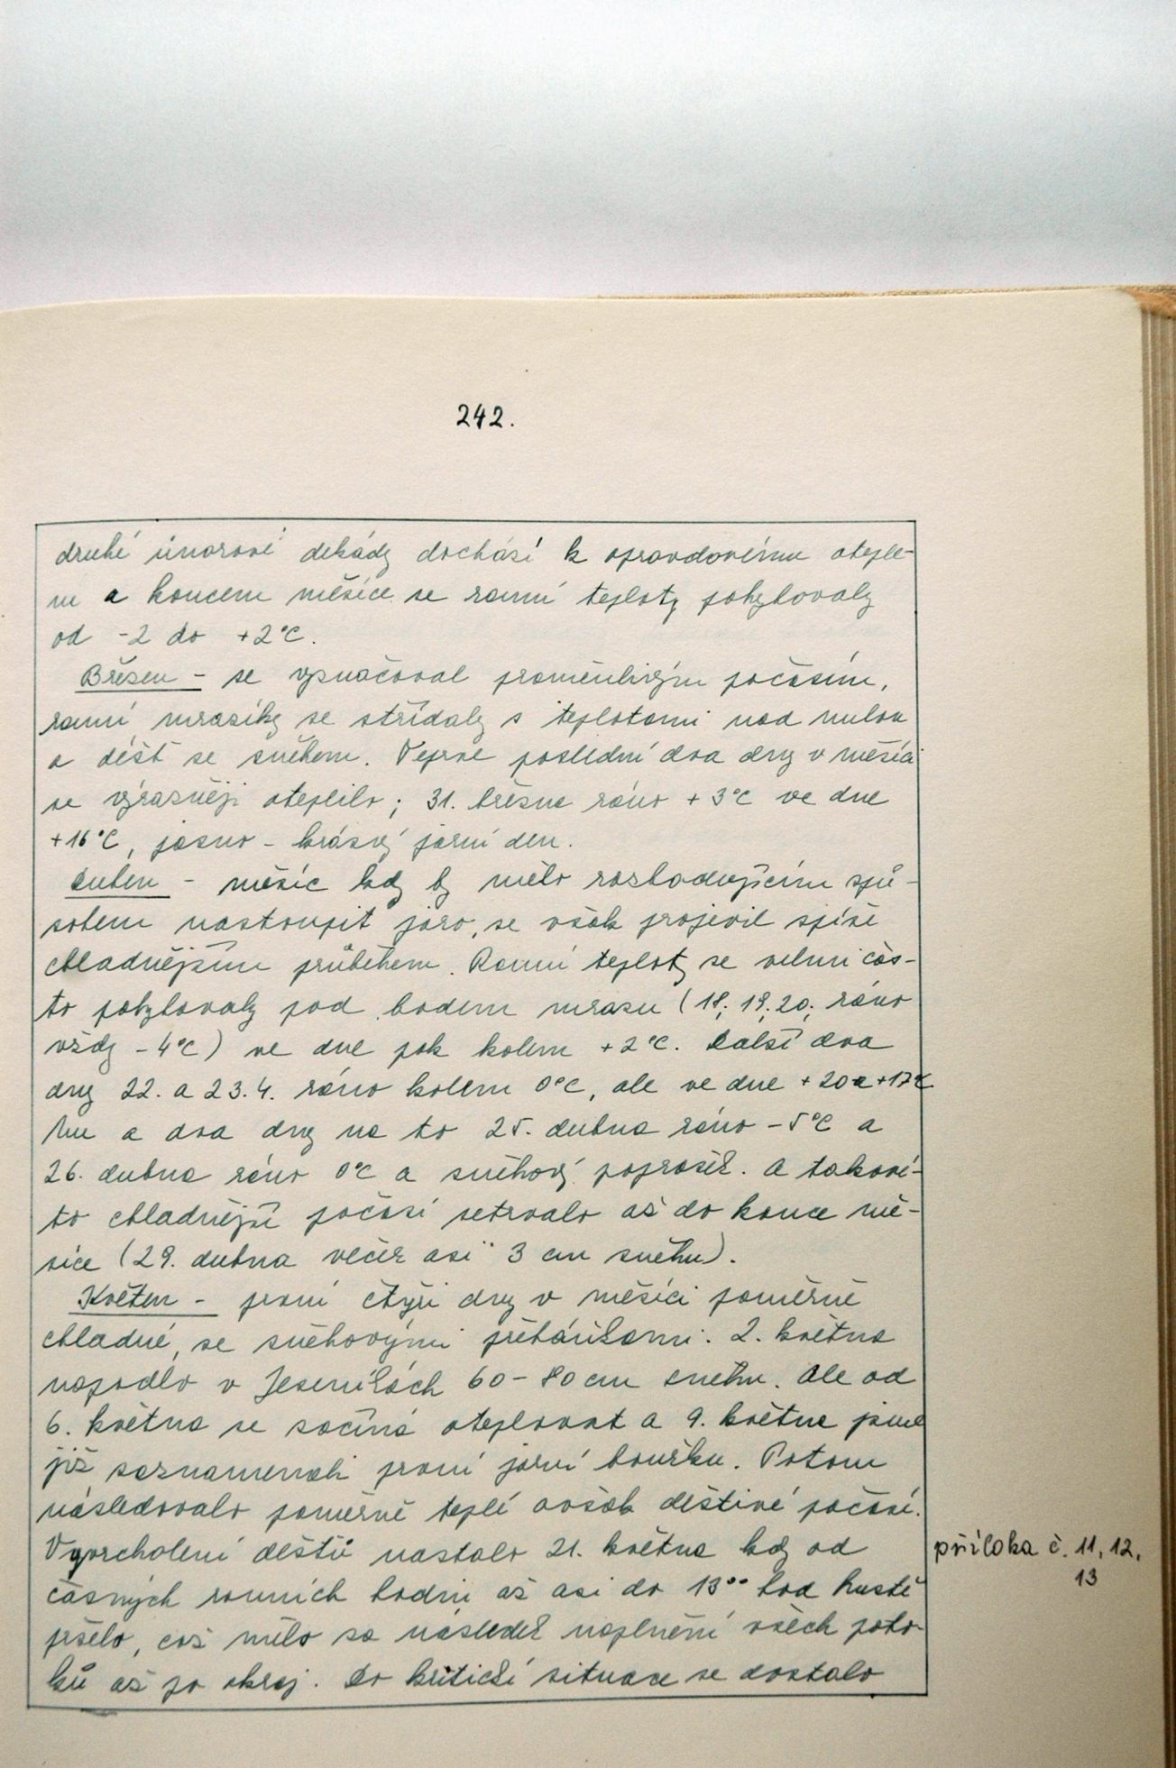 242.
druhé únorové dekády dochází k opravdovému oteple-
ní a koncem měsíce se ranní teploty pohybovaly
od -2 do +2°C.
Březen - se vyznačoval proměnlivým počasím,
ranní mrazíky se střídaly s teplotami nad nulou
a déšť se sněhem. Teprve poslední dva dny v měsíci
se výrazněji oteplilo; 31. března ráno +3°C ve dne
+16°C, jasno - krásný jarní den.
Duben - měsíc kdy by mělo rozhodujícím způ-
sobem nastoupit jaro, se však projevil spíše
chladnějším průběhem. Ranní teploty se velmi čas-
to pohybovaly pod bodem mrazu (18; 19; 20; ráno
vždy -4°C) ve dne pak kolem +2°C. Další dva
dny 22. a 23.4. ráno kolem 0°C, ale ve dne +20 a +17°C
a dva dny na to 25. dubna ráno -5°C a
26. dubna ráno 0°C a sněhový poprašek. A takové-
to chladnější počasí setrvalo až do konce mě-
síce (29. dubna večer asi 3 cm sněhu).
Květen - první čtyři dny v měsíci poměrně
chladné, se sněhovými přeháňkami. 2. května
napadlo v Jeseníkách 60-80 cm sněhu. Ale od
6. května se začíná oteplovat a 9. května jsme
již zaznamenali první jarní bouřku. Potom
následovalo poměrně teplé avšak deštivé počasí.
Vyvrcholení dešťů nastalo 21. května kdy od
časných ranních hodin až asi do 13°° hod hustě
pršelo, což mělo za následek naplnění všech poto-
ků až po okraj. Do kritické situace se dostalo
příloha č. 11, 12,
13